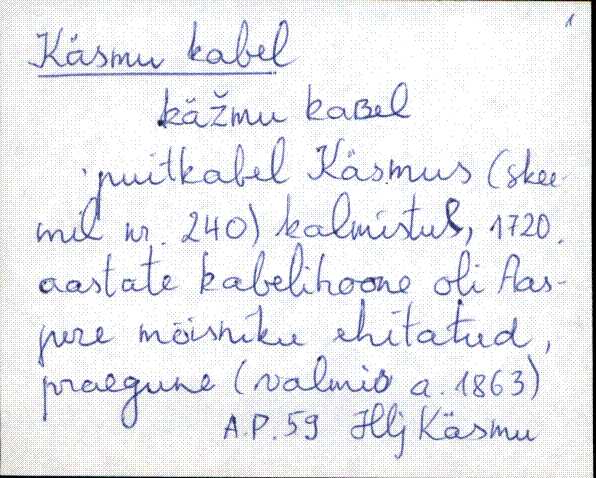 1
Käsmu kabel
käžmu kaʙel
puitkabel Käsmus (skee-
mil nr. 240) kalmistul, 1720.
aastate kabelihoone oli Aas-
pere mõisniku ehitatud,
praegune (valmis a. 1863)
A.P. 59 Hlj Käsmu